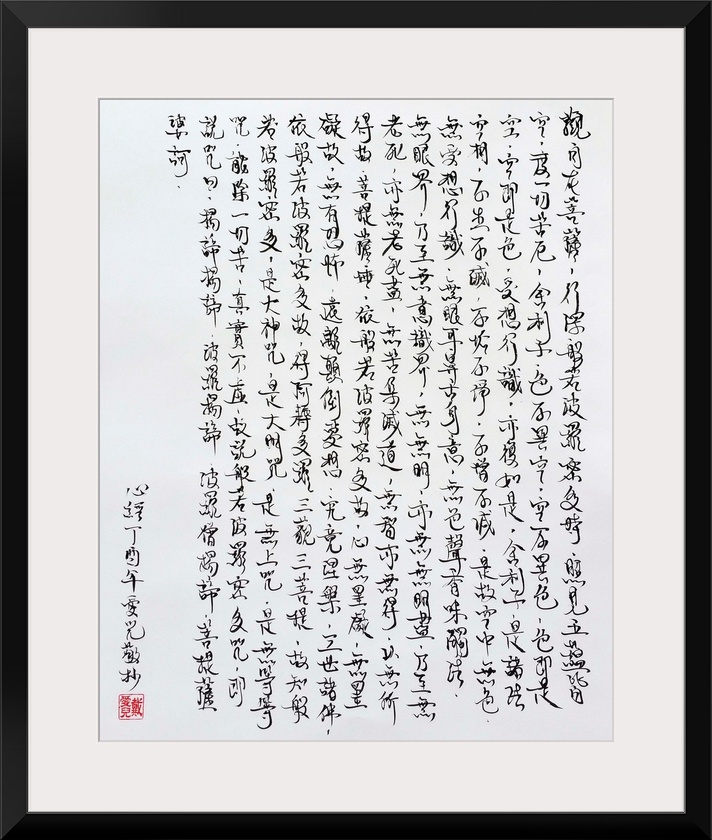 觀自在菩薩，行深般若波羅蜜多時，照見五蘊皆
空，度一切苦厄，舍利子，色不異空，空不異色，色即是
空，空即是色，受想行識，亦復如是，舍利子，是諸法
空相，不生不滅，不垢不淨，不增不減，是故空中無色，
無受想行識，無眼耳鼻舌身意，無色聲香味觸法，
無眼界，乃至無意識界，無無明，亦無無明盡，乃至無
老死，亦無老死盡，無苦集滅道，無智亦無得，以無所
得故，菩提薩埵，依般若波羅蜜多故，心無罣礙，無罣
礙故，無有恐怖，遠離顛倒夢想，究竟涅槃，三世諸佛，
依般若波羅蜜多故，得阿耨多羅三藐三菩提，故知般
若波羅蜜多，是大神咒，是大明咒，是無上咒，是無等等
咒，能除一切苦，真實不虛，故說般若波羅蜜多咒，即
說咒曰，揭諦揭諦，波羅揭諦，波羅僧揭諦，菩提薩
婆訶．
心經丁酉年愛兒敬抄
戴愛兒